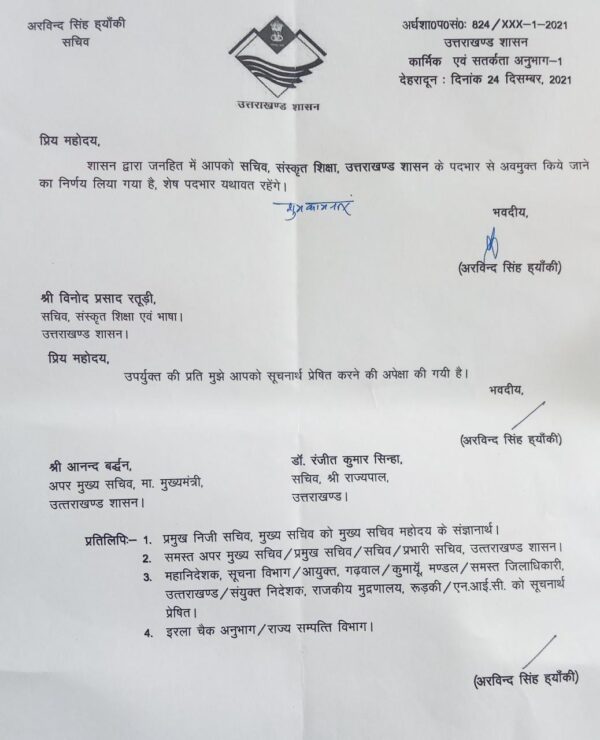 अरविन्द सिंह ह्यॉंकी
सचिव
उत्तराखण्ड शासन
अर्धशा0प0सं0: 824/XXX-1-2021
उत्तराखण्ड शासन
कार्मिक एवं सतर्कता अनुभाग-1
देहरादून : दिनांक 24 दिसम्बर, 2021
प्रिय महोदय,
शासन द्वारा जनहित में आपको सचिव, संस्कृत शिक्षा, उत्तराखण्ड शासन के पदभार से अवमुक्त किये जाने
का निर्णय लिया गया है, शेष पदभार यथावत रहेंगे।
शुभकामनाएं
भवदीय,
(अरविन्द सिंह ह्यॉंकी)
श्री विनोद प्रसाद रतूड़ी,
सचिव, संस्कृत शिक्षा एवं भाषा।
उत्तराखण्ड शासन।
प्रिय महोदय,
उपर्युक्त की प्रति मुझे आपको सूचनार्थ प्रेषित करने की अपेक्षा की गयी है।
भवदीय,
(अरविन्द सिंह ह्यॉंकी)
श्री आनन्द बर्द्धन,
अपर मुख्य सचिव, मा. मुख्यमंत्री,
उत्तराखण्ड शासन।
डॉ. रंजीत कुमार सिन्हा,
सचिव, श्री राज्यपाल,
उत्तराखण्ड।
प्रतिलिपिः- 1. प्रमुख निजी सचिव, मुख्य सचिव को मुख्य सचिव महोदय के संज्ञानार्थ।
2. समस्त अपर मुख्य सचिव/प्रमुख सचिव/सचिव/प्रभारी सचिव, उत्तराखण्ड शासन।
3. महानिदेशक, सूचना विभाग/आयुक्त, गढ़वाल/कुमायूँ, मण्डल/समस्त जिलाधिकारी,
उत्तराखण्ड/संयुक्त निदेशक, राजकीय मुद्रणालय, रूड़की/एन.आई.सी. को सूचनार्थ
प्रेषित।
4. इरला चैक अनुभाग/राज्य सम्पत्ति विभाग।
(अरविन्द सिंह ह्यॉंकी)